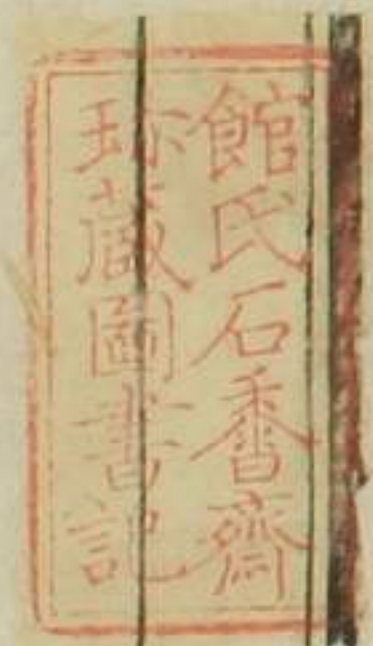 館氏石香齋
珎藏圖書記